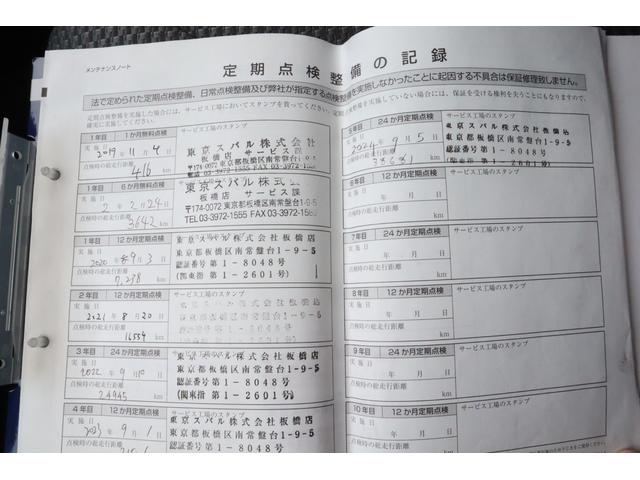 メンテナンスノート
定期点検整備の記録
法で定められた定期点検整備、日常点検整備及び弊社が指定する点検整備を実施しなかったことに起因する不具合は保証修理致しません。
1年目 1か月無料点検
サービス工場のスタンプ
実施日
2019年 11月 4日
点検時の総走行距離
416 km
東京スバル株式会社
板橋店 サービス課
〒174-0072 東京都板橋区南常盤台
TEL 03-3972-1555
1年目 6か月無料点検
サービス工場のスタンプ
実施日
2年 2月 24日
点検時の総走行距離
3642 km
東京スバル株式
板橋店 サービス課
〒174-0072 東京都板橋区南常盤台1-9-5
TEL 03-3972-1555 FAX 03-3972-
1年目 12か月定期点検
サービス工場のスタンプ
実施日
2020年 9月 3日
点検時の総走行距離
7,238 km
東京スバル株式会社板橋店
東京都板橋区南常盤台1-9-5
認証番号第1-8048号
(関東指第1-2601号)
2年目 12か月定期点検
サービス工場のスタンプ
実施日
2021年 8月 20日
点検時の総走行距離
16554 km
東京スバル株式会社板橋店
東京都板橋区南常盤台1-9-5
認証番号第1-8048号
(関東指第1-2601号)
3年目 24か月定期点検
サービス工場のスタンプ
実施日
2022年 9月 10日
点検時の総走行距離
24945 km
東京スバル株式会社板橋店
東京都板橋区南常盤台1-9-5
認証番号第1-8048号
(関東指第1-2601号)
4年目 12か月定期点検
サービス工場のスタンプ
実施日
2023年 9月 1日
点検時の総走行距離
東京スバル株式会社板橋店
東京都板橋区南常盤台1-9-5
認証番号第1-8048号
5年目 24か月定期点検
サービス工場のスタンプ
実施日
2024年 9月 5日
点検時の総走行距離
km
東京スバル株式会社板橋店
東京都板橋区南常盤台1-9-5
認証番号第1-8048号
(関東指第1-2601号)
6年目 12か月定期点検
サービス工場のスタンプ
実施日
年 月 日
点検時の総走行距離
km
7年目 24か月定期点検
サービス工場のスタンプ
実施日
年 月 日
点検時の総走行距離
km
8年目 12か月定期点検
サービス工場のスタンプ
実施日
年 月 日
点検時の総走行距離
km
9年目 24か月定期点検
サービス工場のスタンプ
実施日
年 月 日
点検時の総走行距離
km
10年目 12か月定期点検
サービス工場のスタンプ
実施日
年 月 日
点検時の総走行距離
km